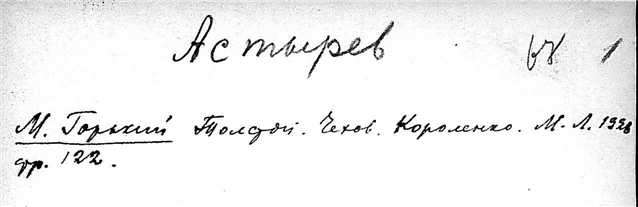 Астырев 1
М. Горький Толстой. Чехов. Короленко. М.-Л. 1928
стр. 122.